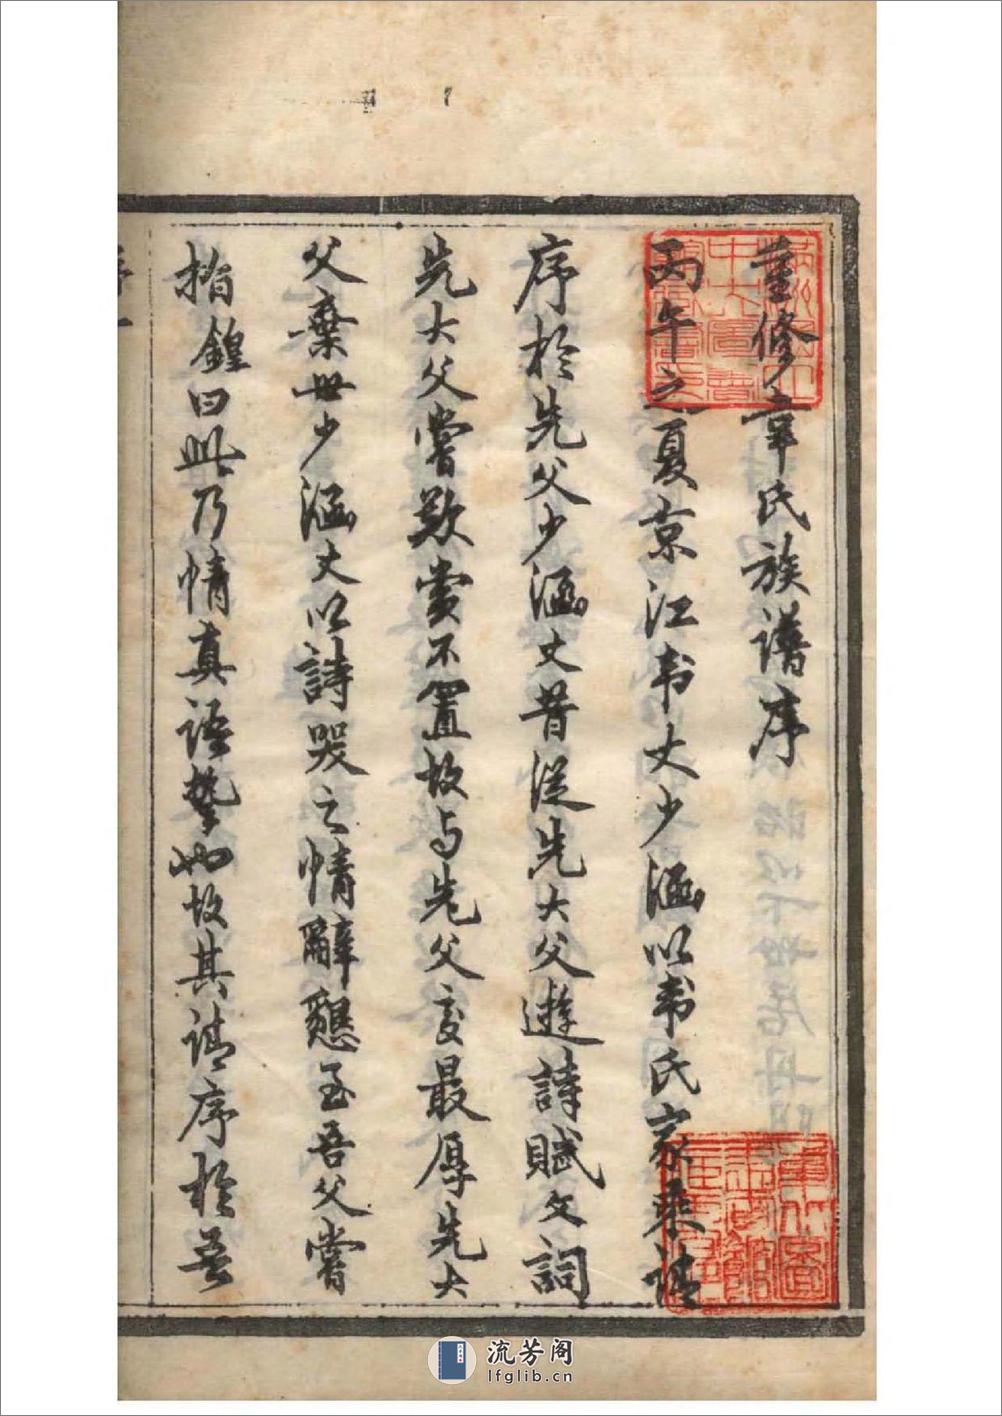 重修韋氏族譜序
丙午之夏京江韦丈少涵以韦氏家乘請
序於先父少涵丈昔從先大父遊詩賦文詞
先大父嘗歎賞不置故与先父交最厚先大
父棄世少涵丈以詩哭之情辭懇至吾父嘗
指鍠曰此乃情真語摯也故其請序於吾
流芳阁
lfglib.cn